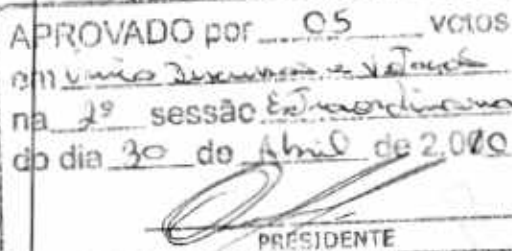 APROVADO por 05 votos
em única Discussão e Votação
na 2ª sessão Extraordinária
do dia 30 de Abril de 2.010
PRESIDENTE